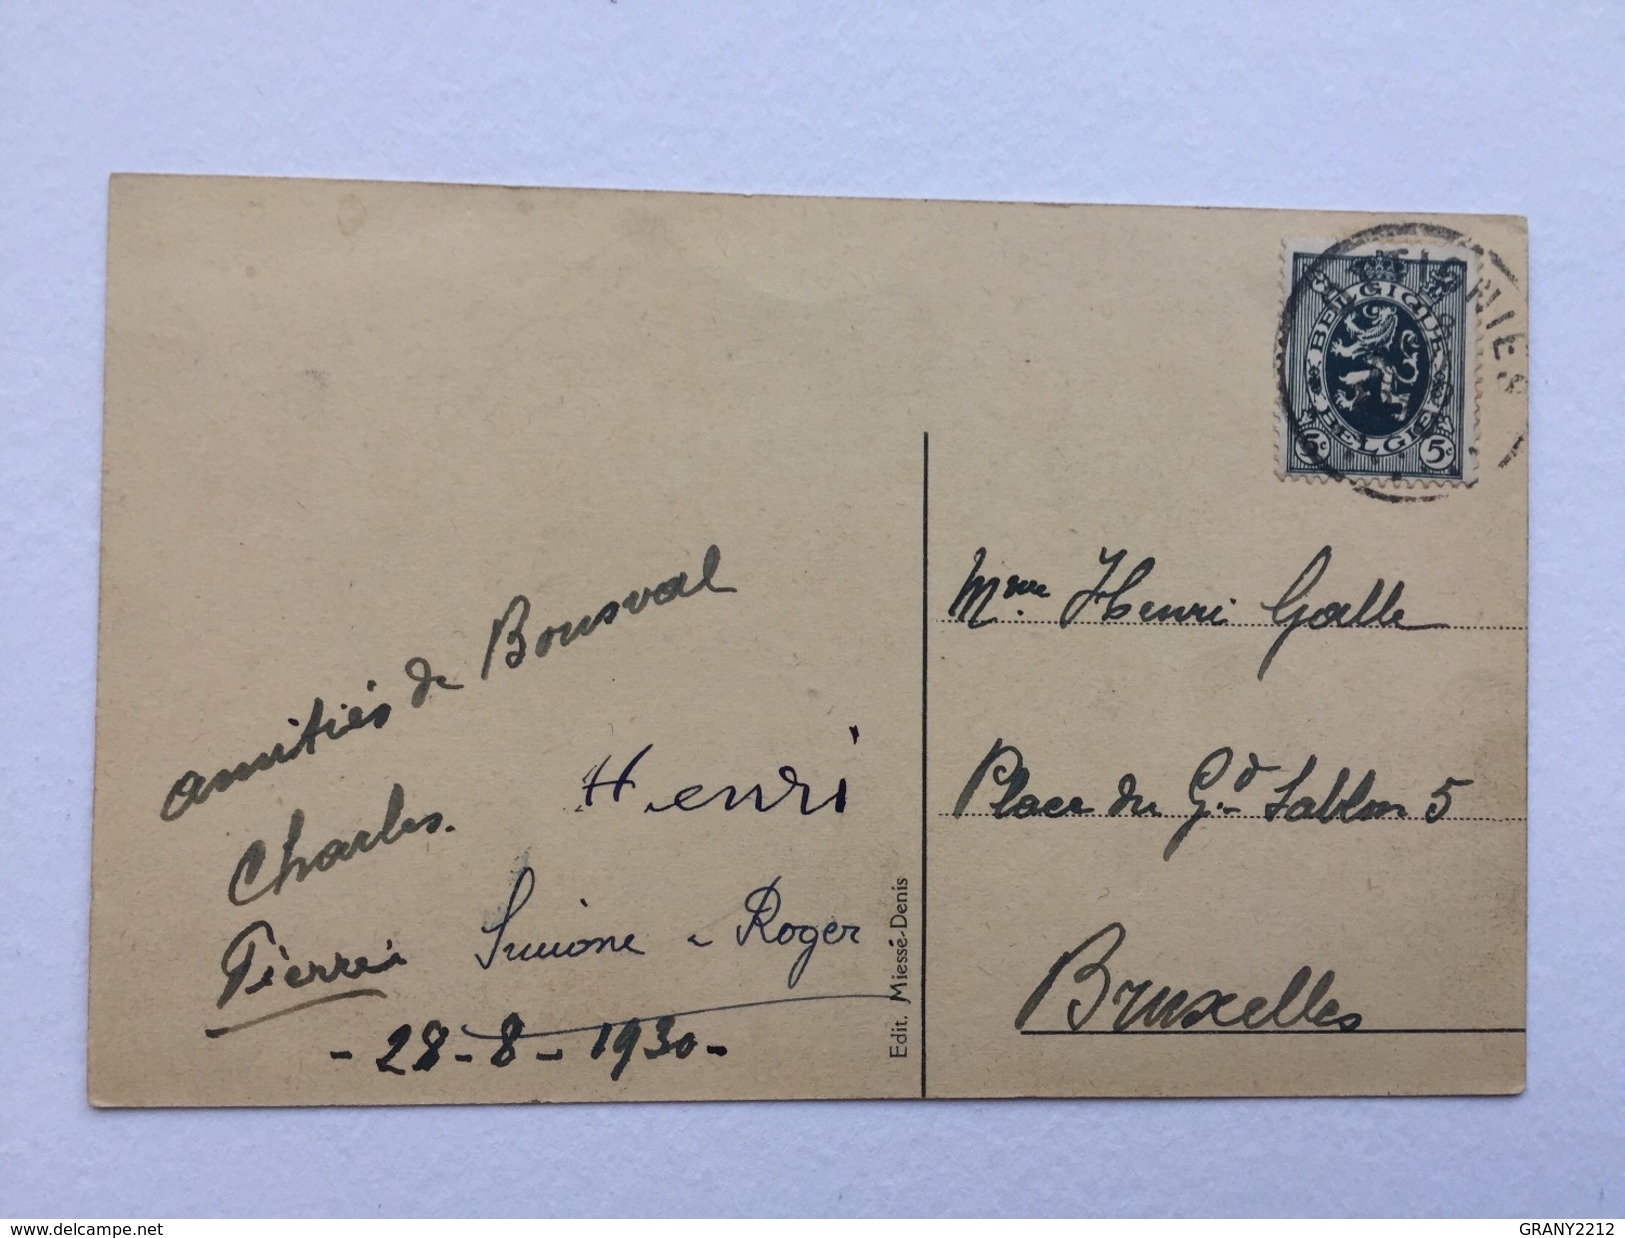 amitiés de Bousval
Charles. Henri
Pierre Simone - Roger
- 28 - 8 - 1930 -
Edit. Miessé-Denis
BELGIQUE
BELGIË
5c 5c
Mme Henri Galle
Place du Gd Sablon 5
Bruxelles
www.delcampe.net
GRANY2212